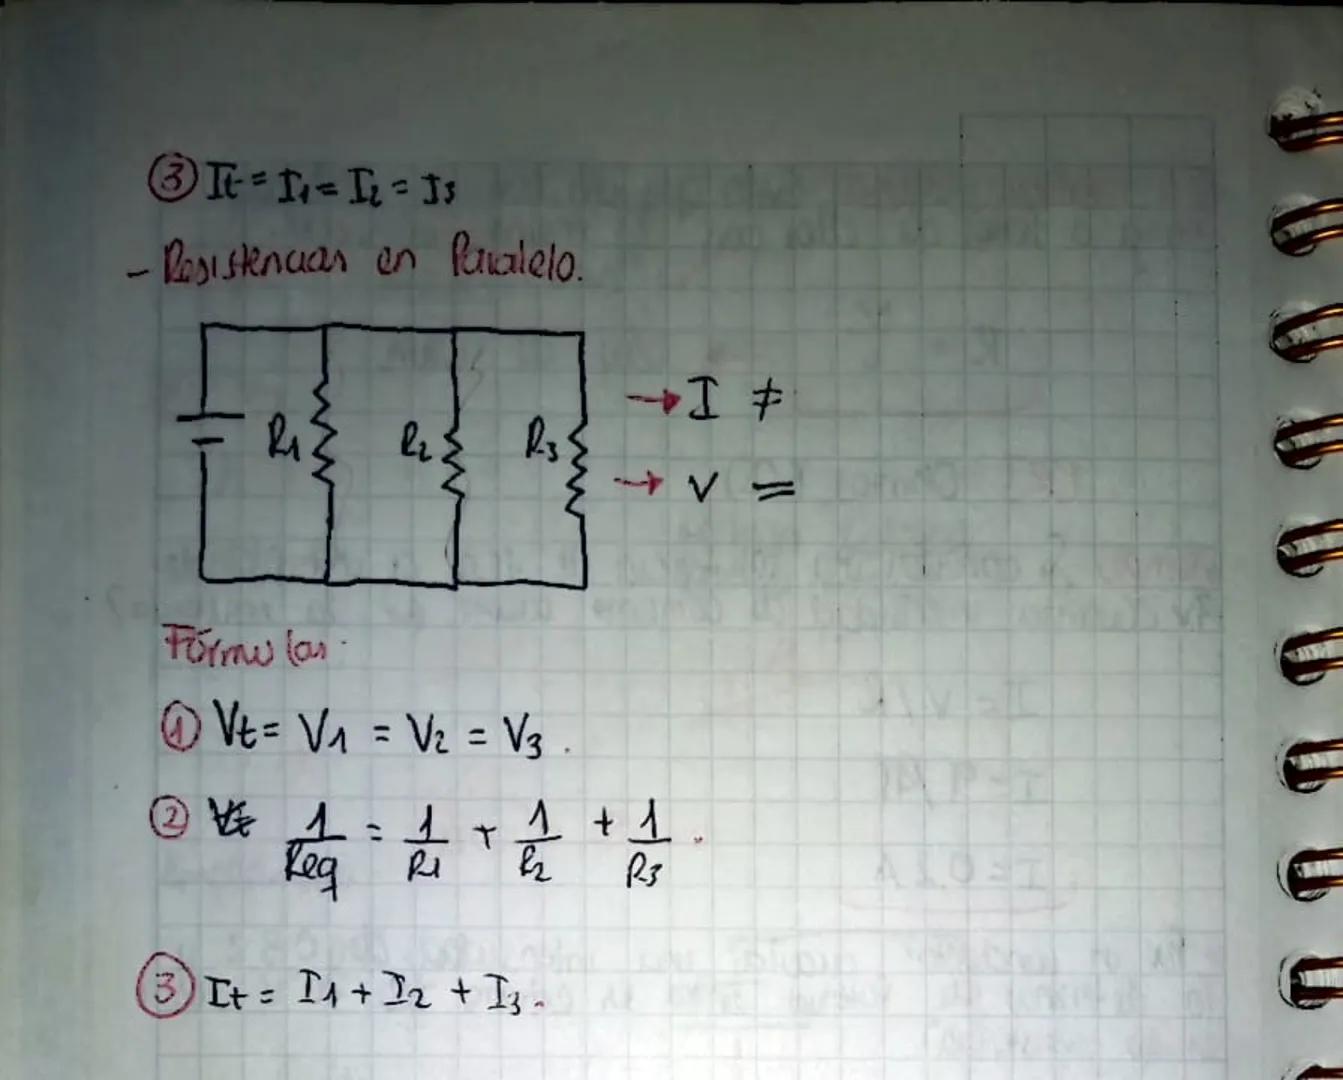 ③ It = I1 = I2 = I3
- Resistencias en Paralelo.
R1 R2 R3
→ I ≠
→ V =
Fórmulas.
① Vt = V1 = V2 = V3.
② 1/Req = 1/R1 + 1/R2 + 1/R3.
③ It = I1 + I2 + I3.